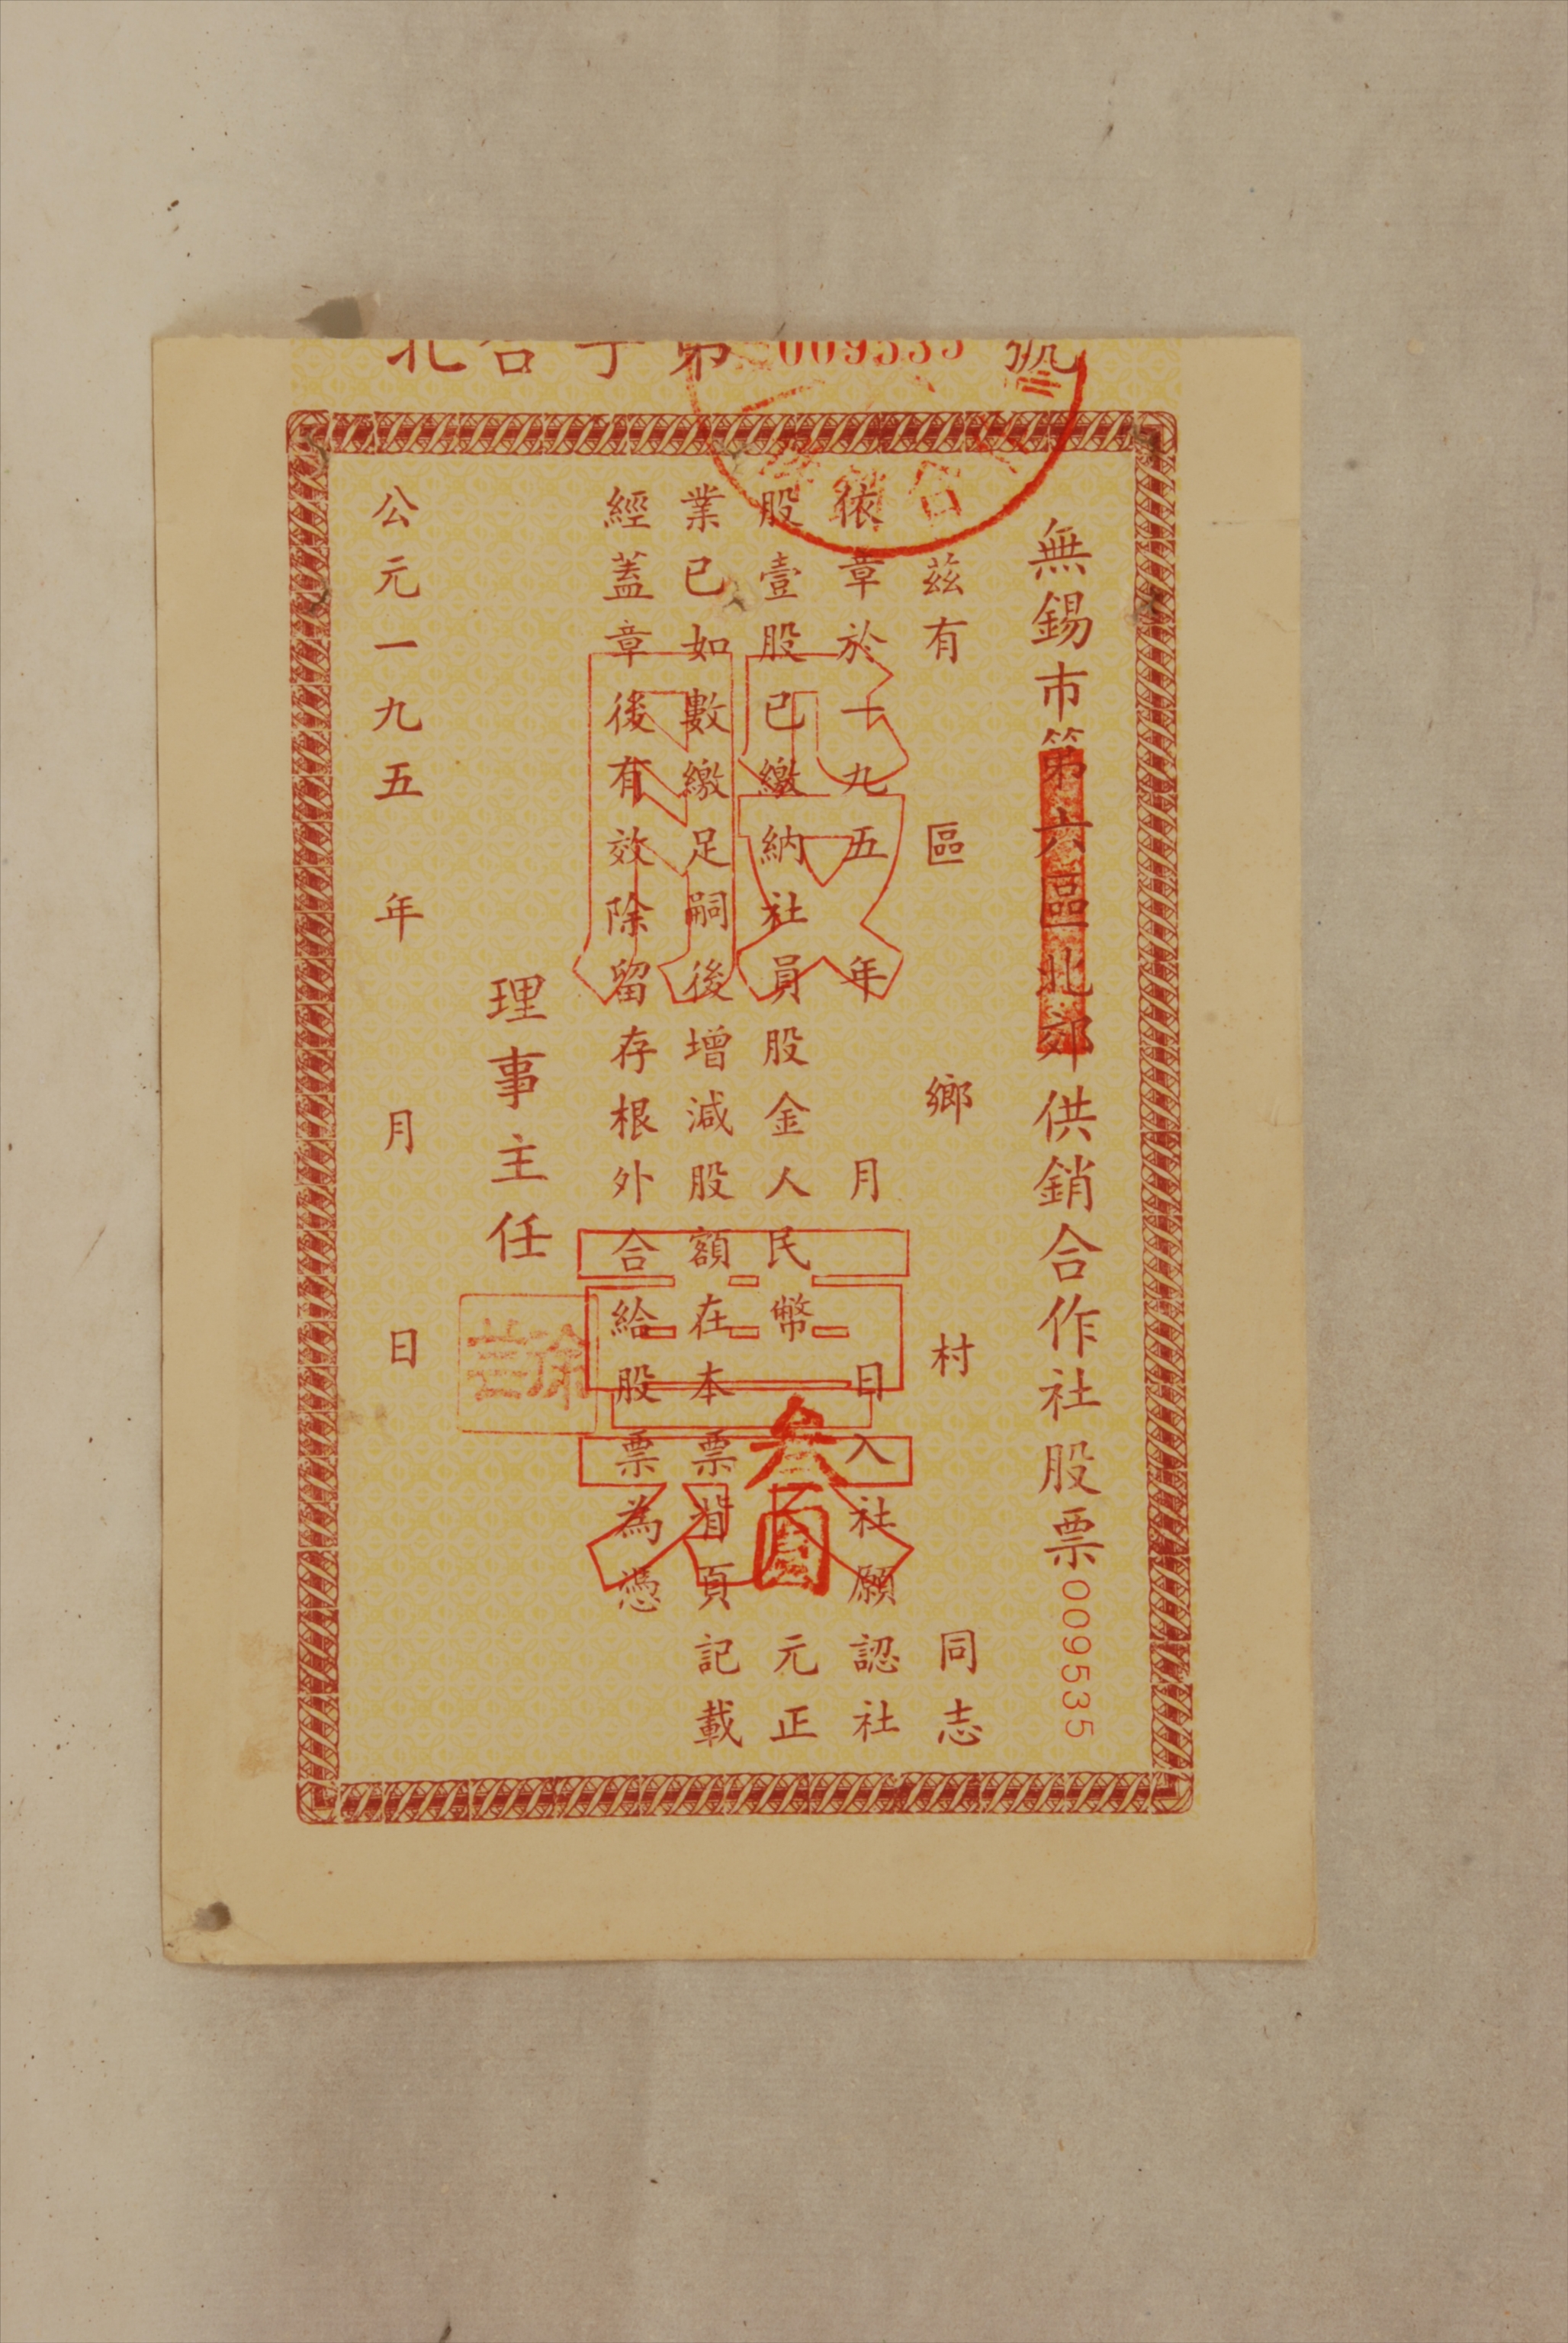 北合字第009535號
無錫市第六區北郊供銷合作社股票009535
茲有 區 鄉 村 同志
依章於一九五 年 月 日入社願認社
股壹股已繳納社員股金人民幣叁圓元正
業已如數繳足嗣後增減股額在本票背頁記載
經蓋章後有效除留存根外合給股票為憑
理事主任
公元一九五 年 月 日
股票